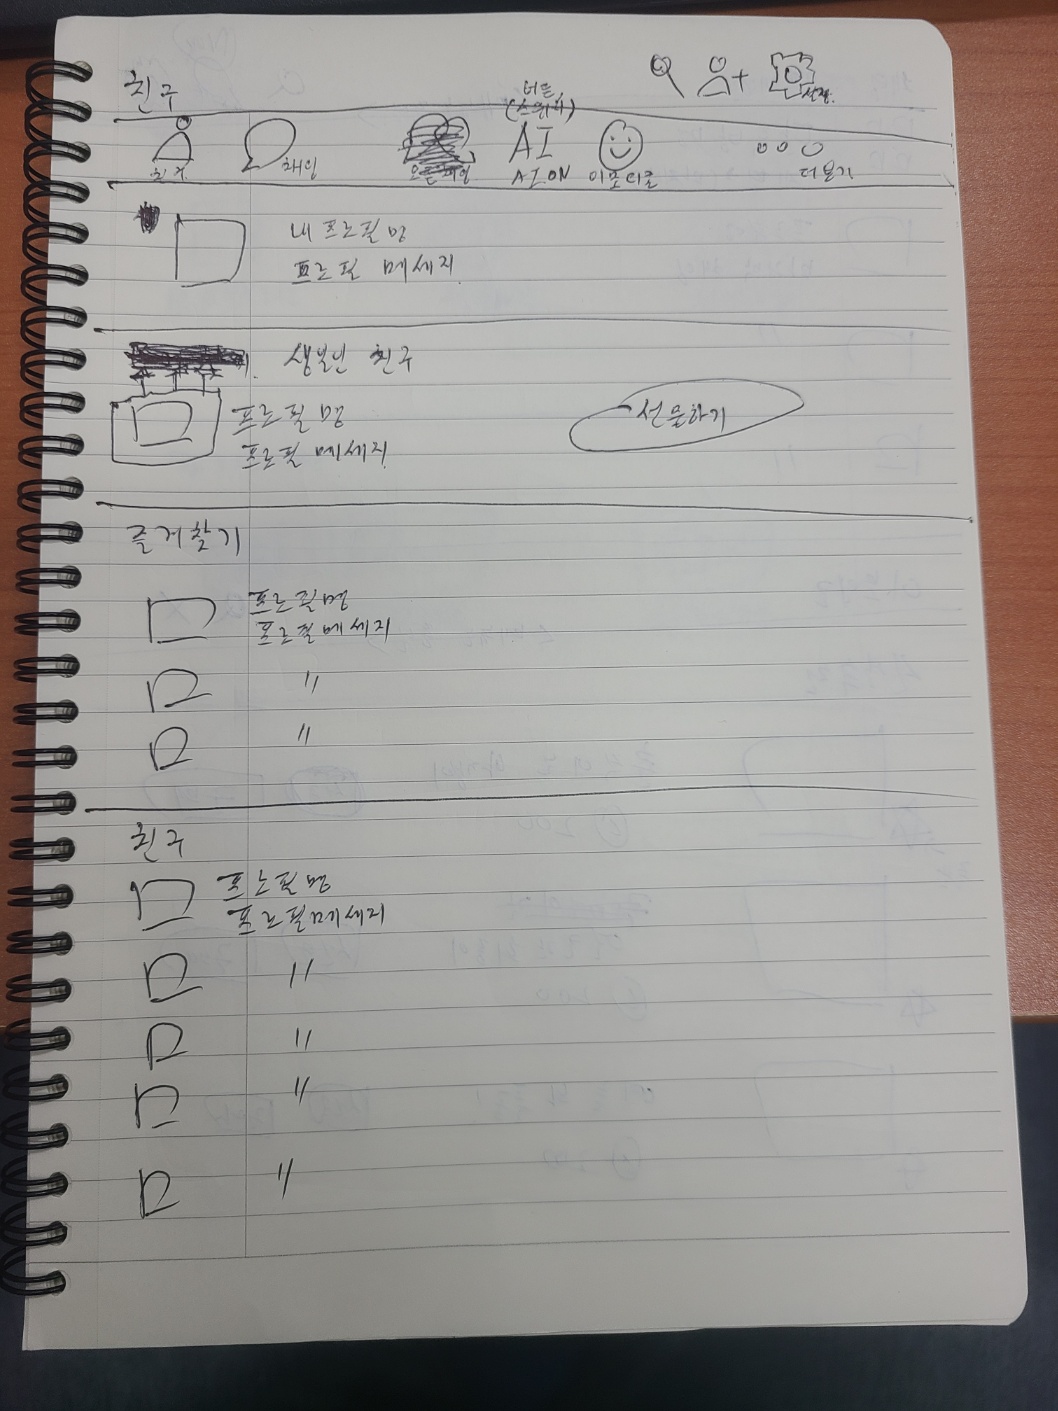 친구
버튼
(스위치)
설정
친구
채팅
오픈채팅
AI
AI ON
이모티콘
더보기
내 프로필 명
프로필 메세지
생일인 친구
프로필 명
프로필 메세지
선물하기
즐겨찾기
프로필명
프로필메세지
〃
〃
친구
프로필 명
프로필메세지
〃
〃
〃
〃